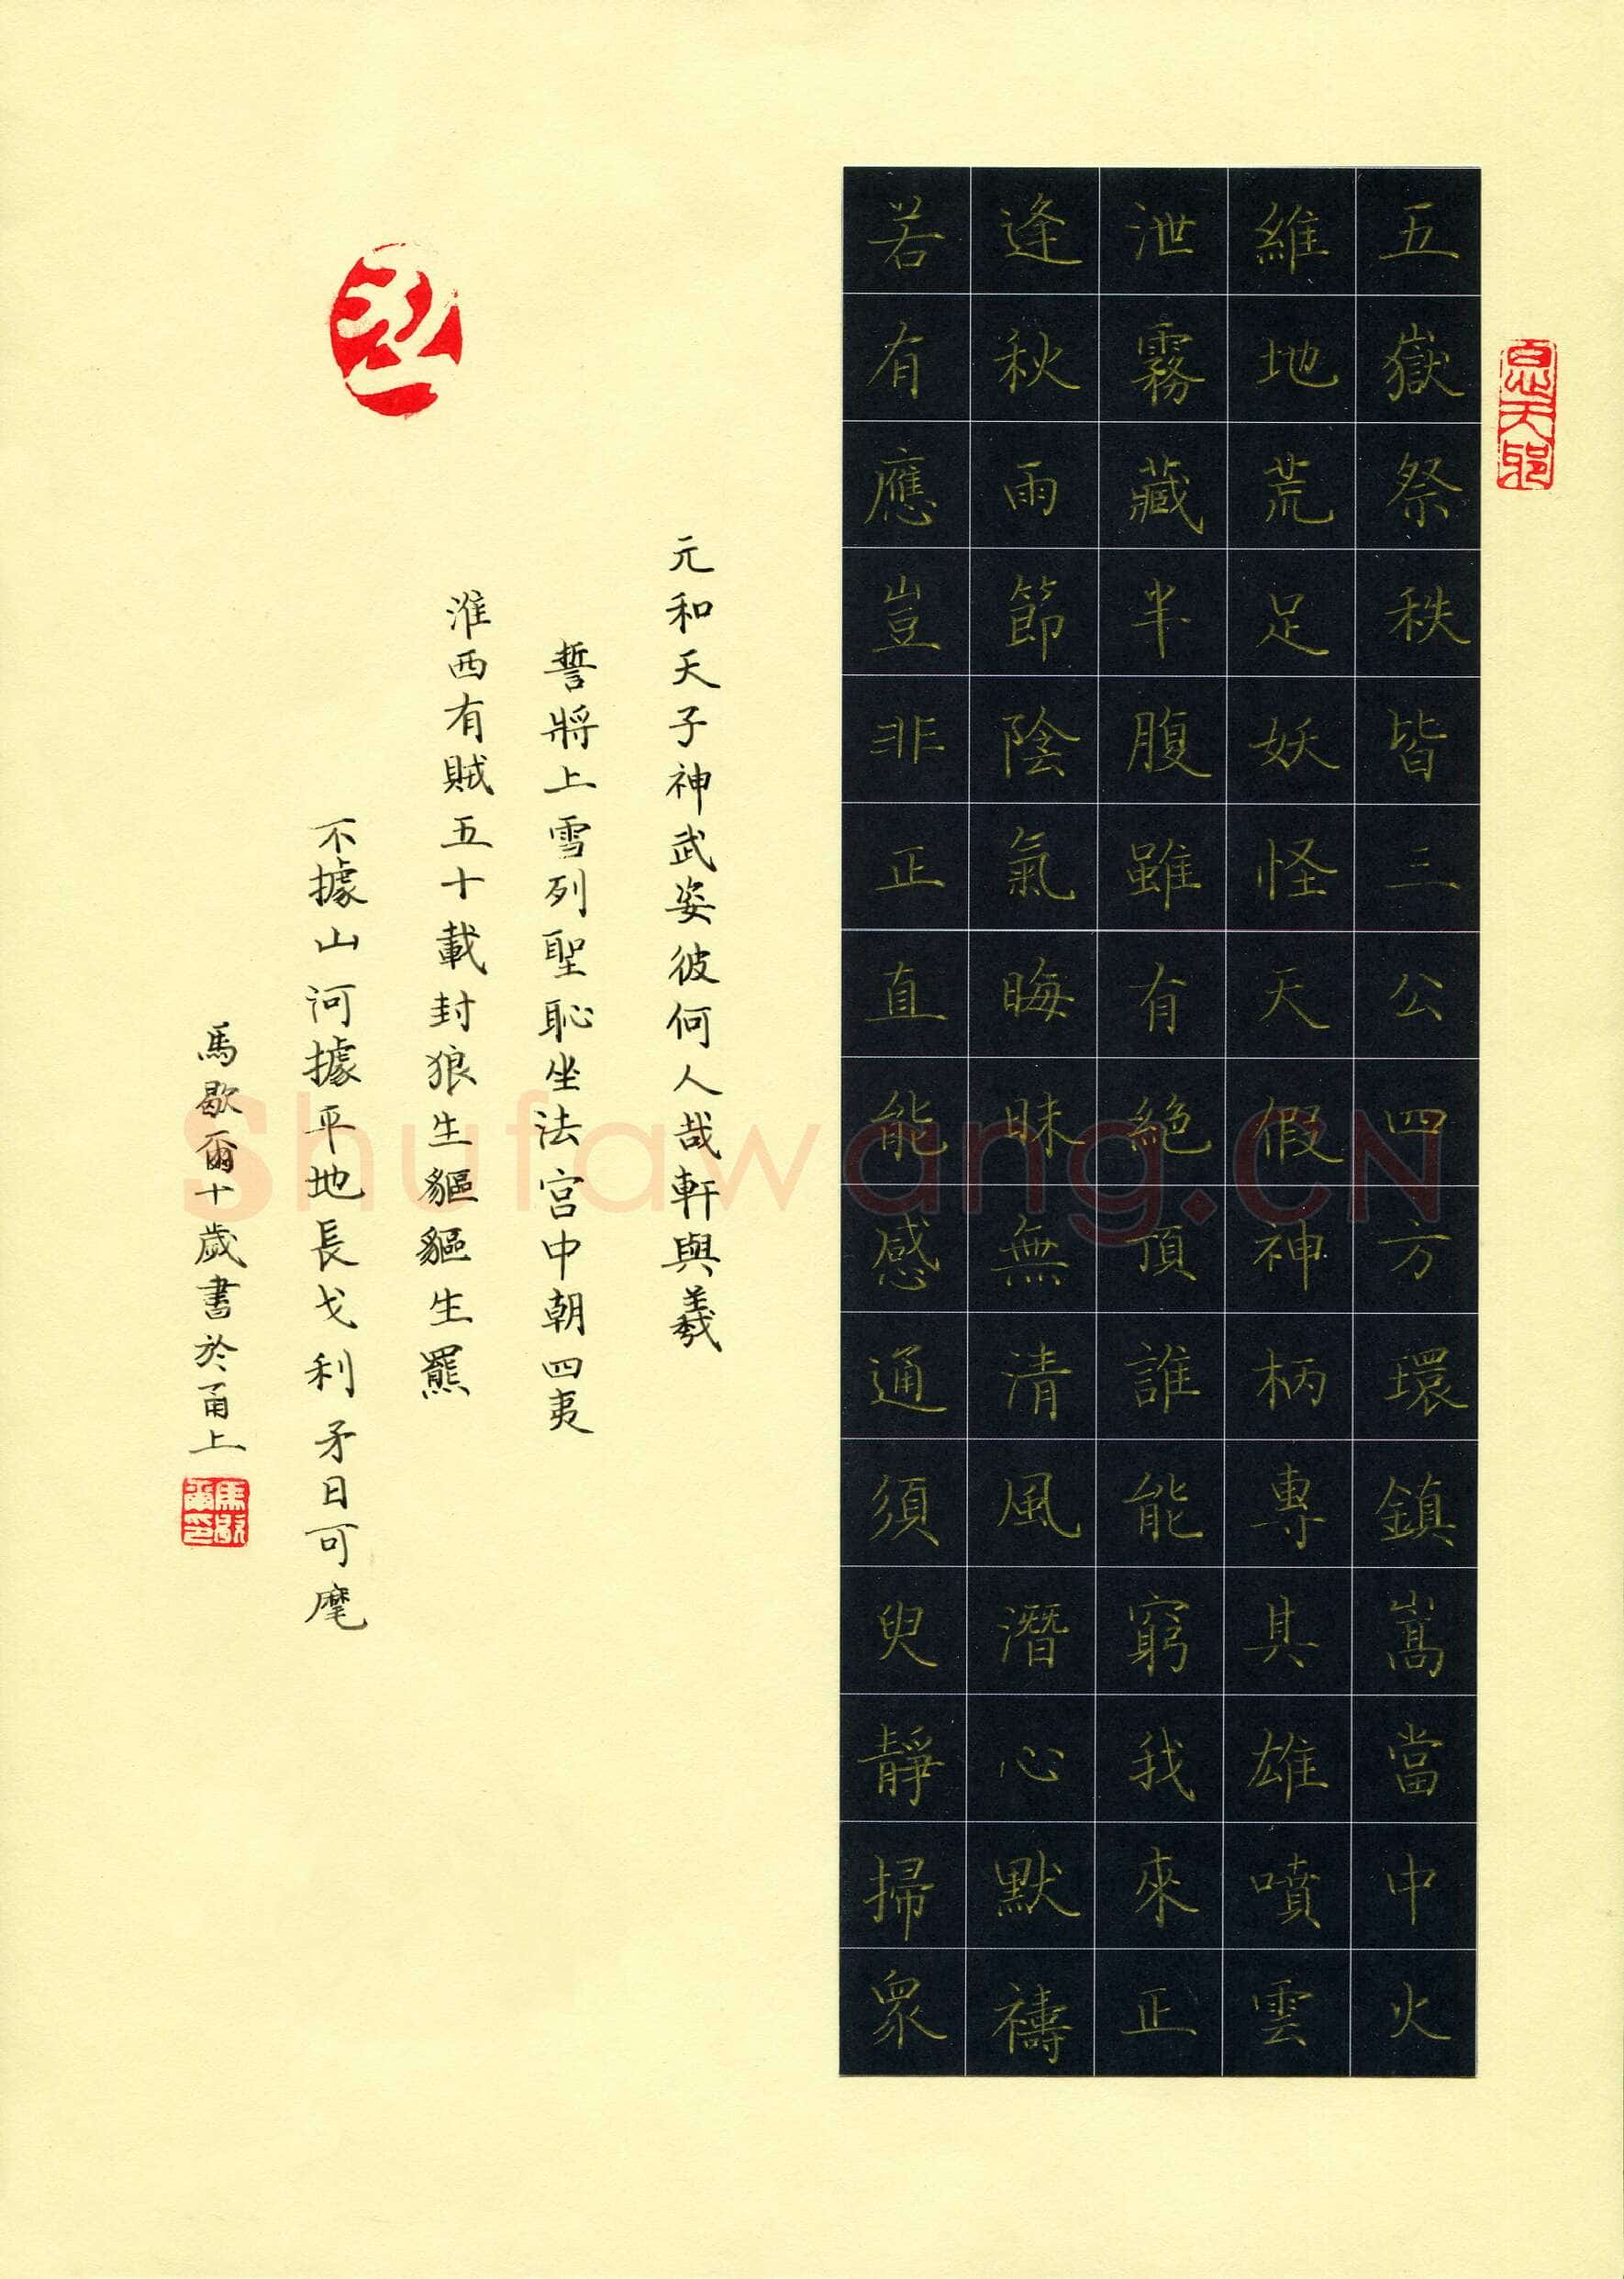 五嶽祭秩皆三公四方環鎮嵩當中火
維地荒足妖怪天假神柄專其雄噴雲
泄霧藏半腹雖有絕頂誰能窮我來正
逢秋雨節陰氣晦昧無清風潛心默禱
若有應豈非正直能感通須臾靜掃衆
元和天子神武姿彼何人哉軒與羲
誓將上雪列聖恥坐法宮中朝四夷
淮西有賊五十載封狼生貙貙生羆
不據山河據平地長戈利矛日可麾
馬歇爾十歲書於甬上
Shufawang.CN